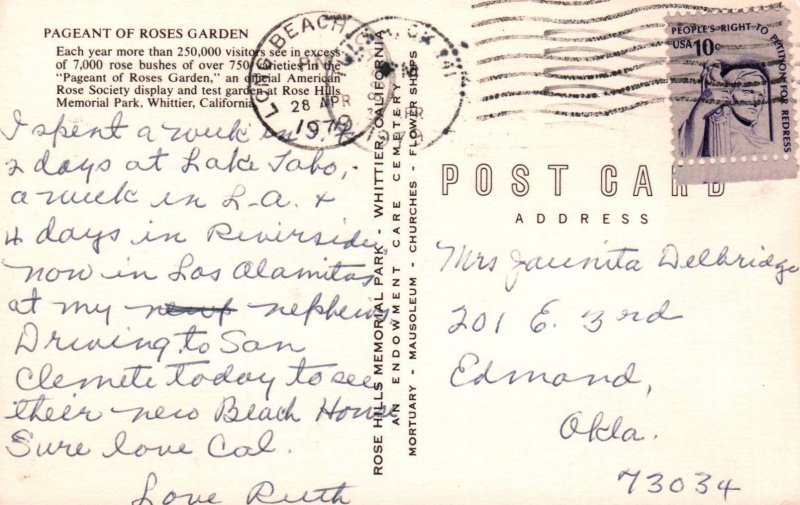 PAGEANT OF ROSES GARDEN
Each year more than 250,000 visitors see in excess
of 7,000 rose bushes of over 750 varieties in the
"Pageant of Roses Garden," an official American
Rose Society display and test garden at Rose Hills
Memorial Park, Whittier, California
I spent a week in
2 days at Lake Taho,-
a week in L-A. &
4 days in Riverside,
now in Los Alamitas
at my nephews
Driving to San
Clemete today to see
their new Beach House
Sure love Cal.
Love Ruth
ROSE HILLS MEMORIAL PARK - WHITTIER, CALIFORNIA
AN ENDOWMENT CARE CEMETERY
MORTUARY - MAUSOLEUM - CHURCHES - FLOWER SHOPS
LONG BEACH, CA
28 APR
1979
PEOPLE'S RIGHT TO PETITION FOR REDRESS
USA 10c
POST CARD
ADDRESS
Mrs Jaunita Delbridge
201 E. 3rd
Edmond,
Okla.
73034